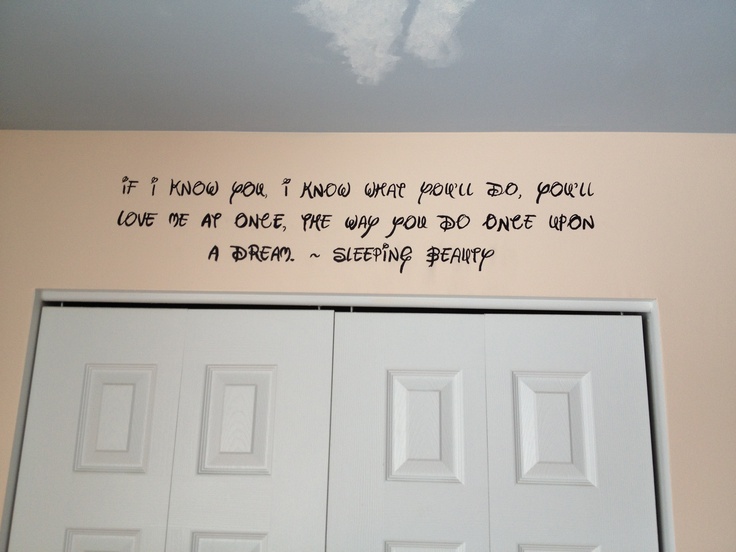 if i know you, i know what you'll do, you'll
love me at once, the way you do once upon
a dream. ~ Sleeping Beauty